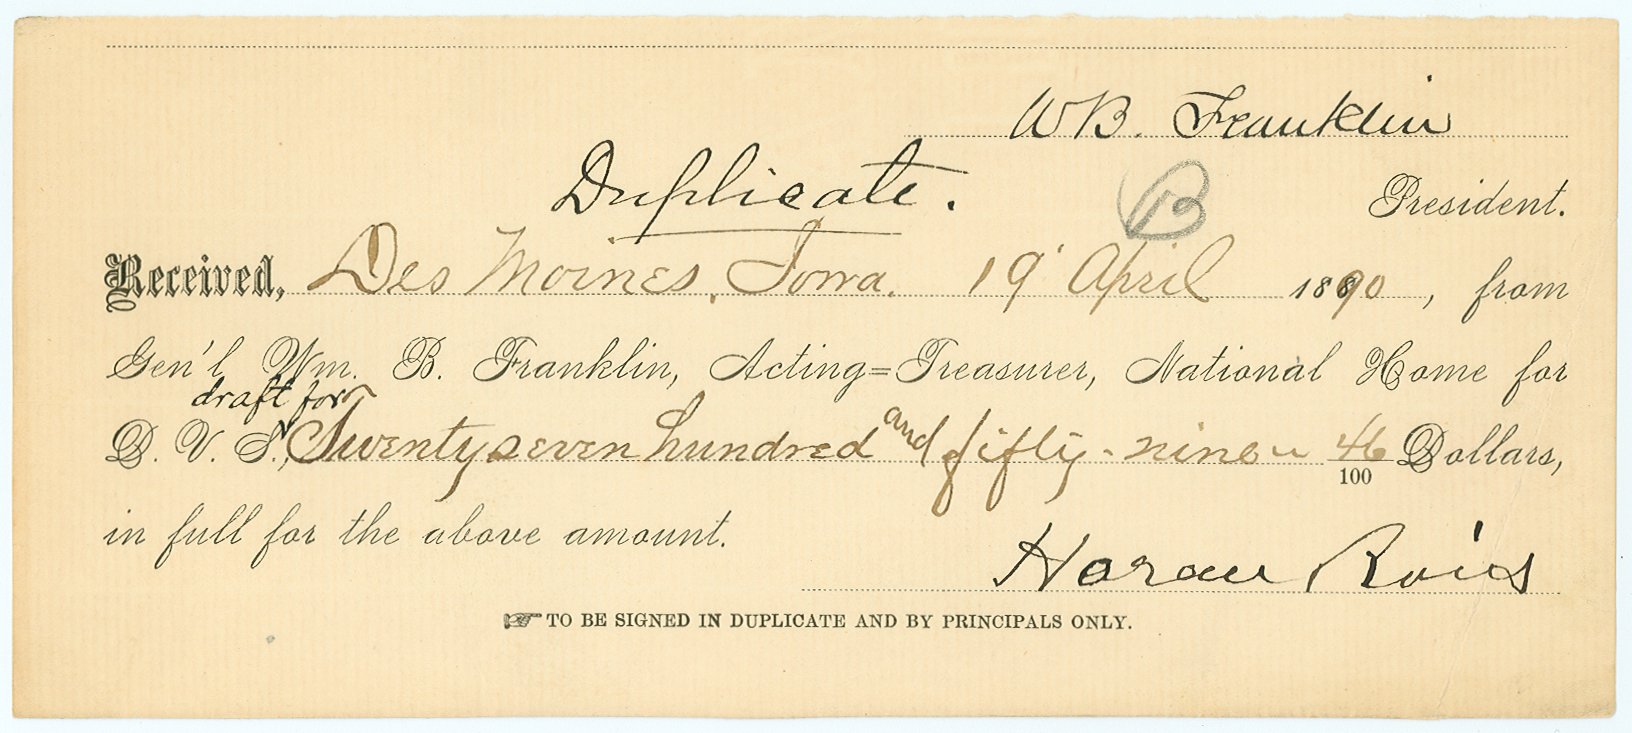 WB. Franklin
Duplicate.
B
President.
Received, Des Moines, Iowa. 19' April 1890, from
Gen'l Wm. B. Franklin, Acting=Treasurer, National Home for
draft for
D. V. S., Twenty seven hundred and fifty-nine 46/100 Dollars,
in full for the above amount.
Horace Boies
TO BE SIGNED IN DUPLICATE AND BY PRINCIPALS ONLY.